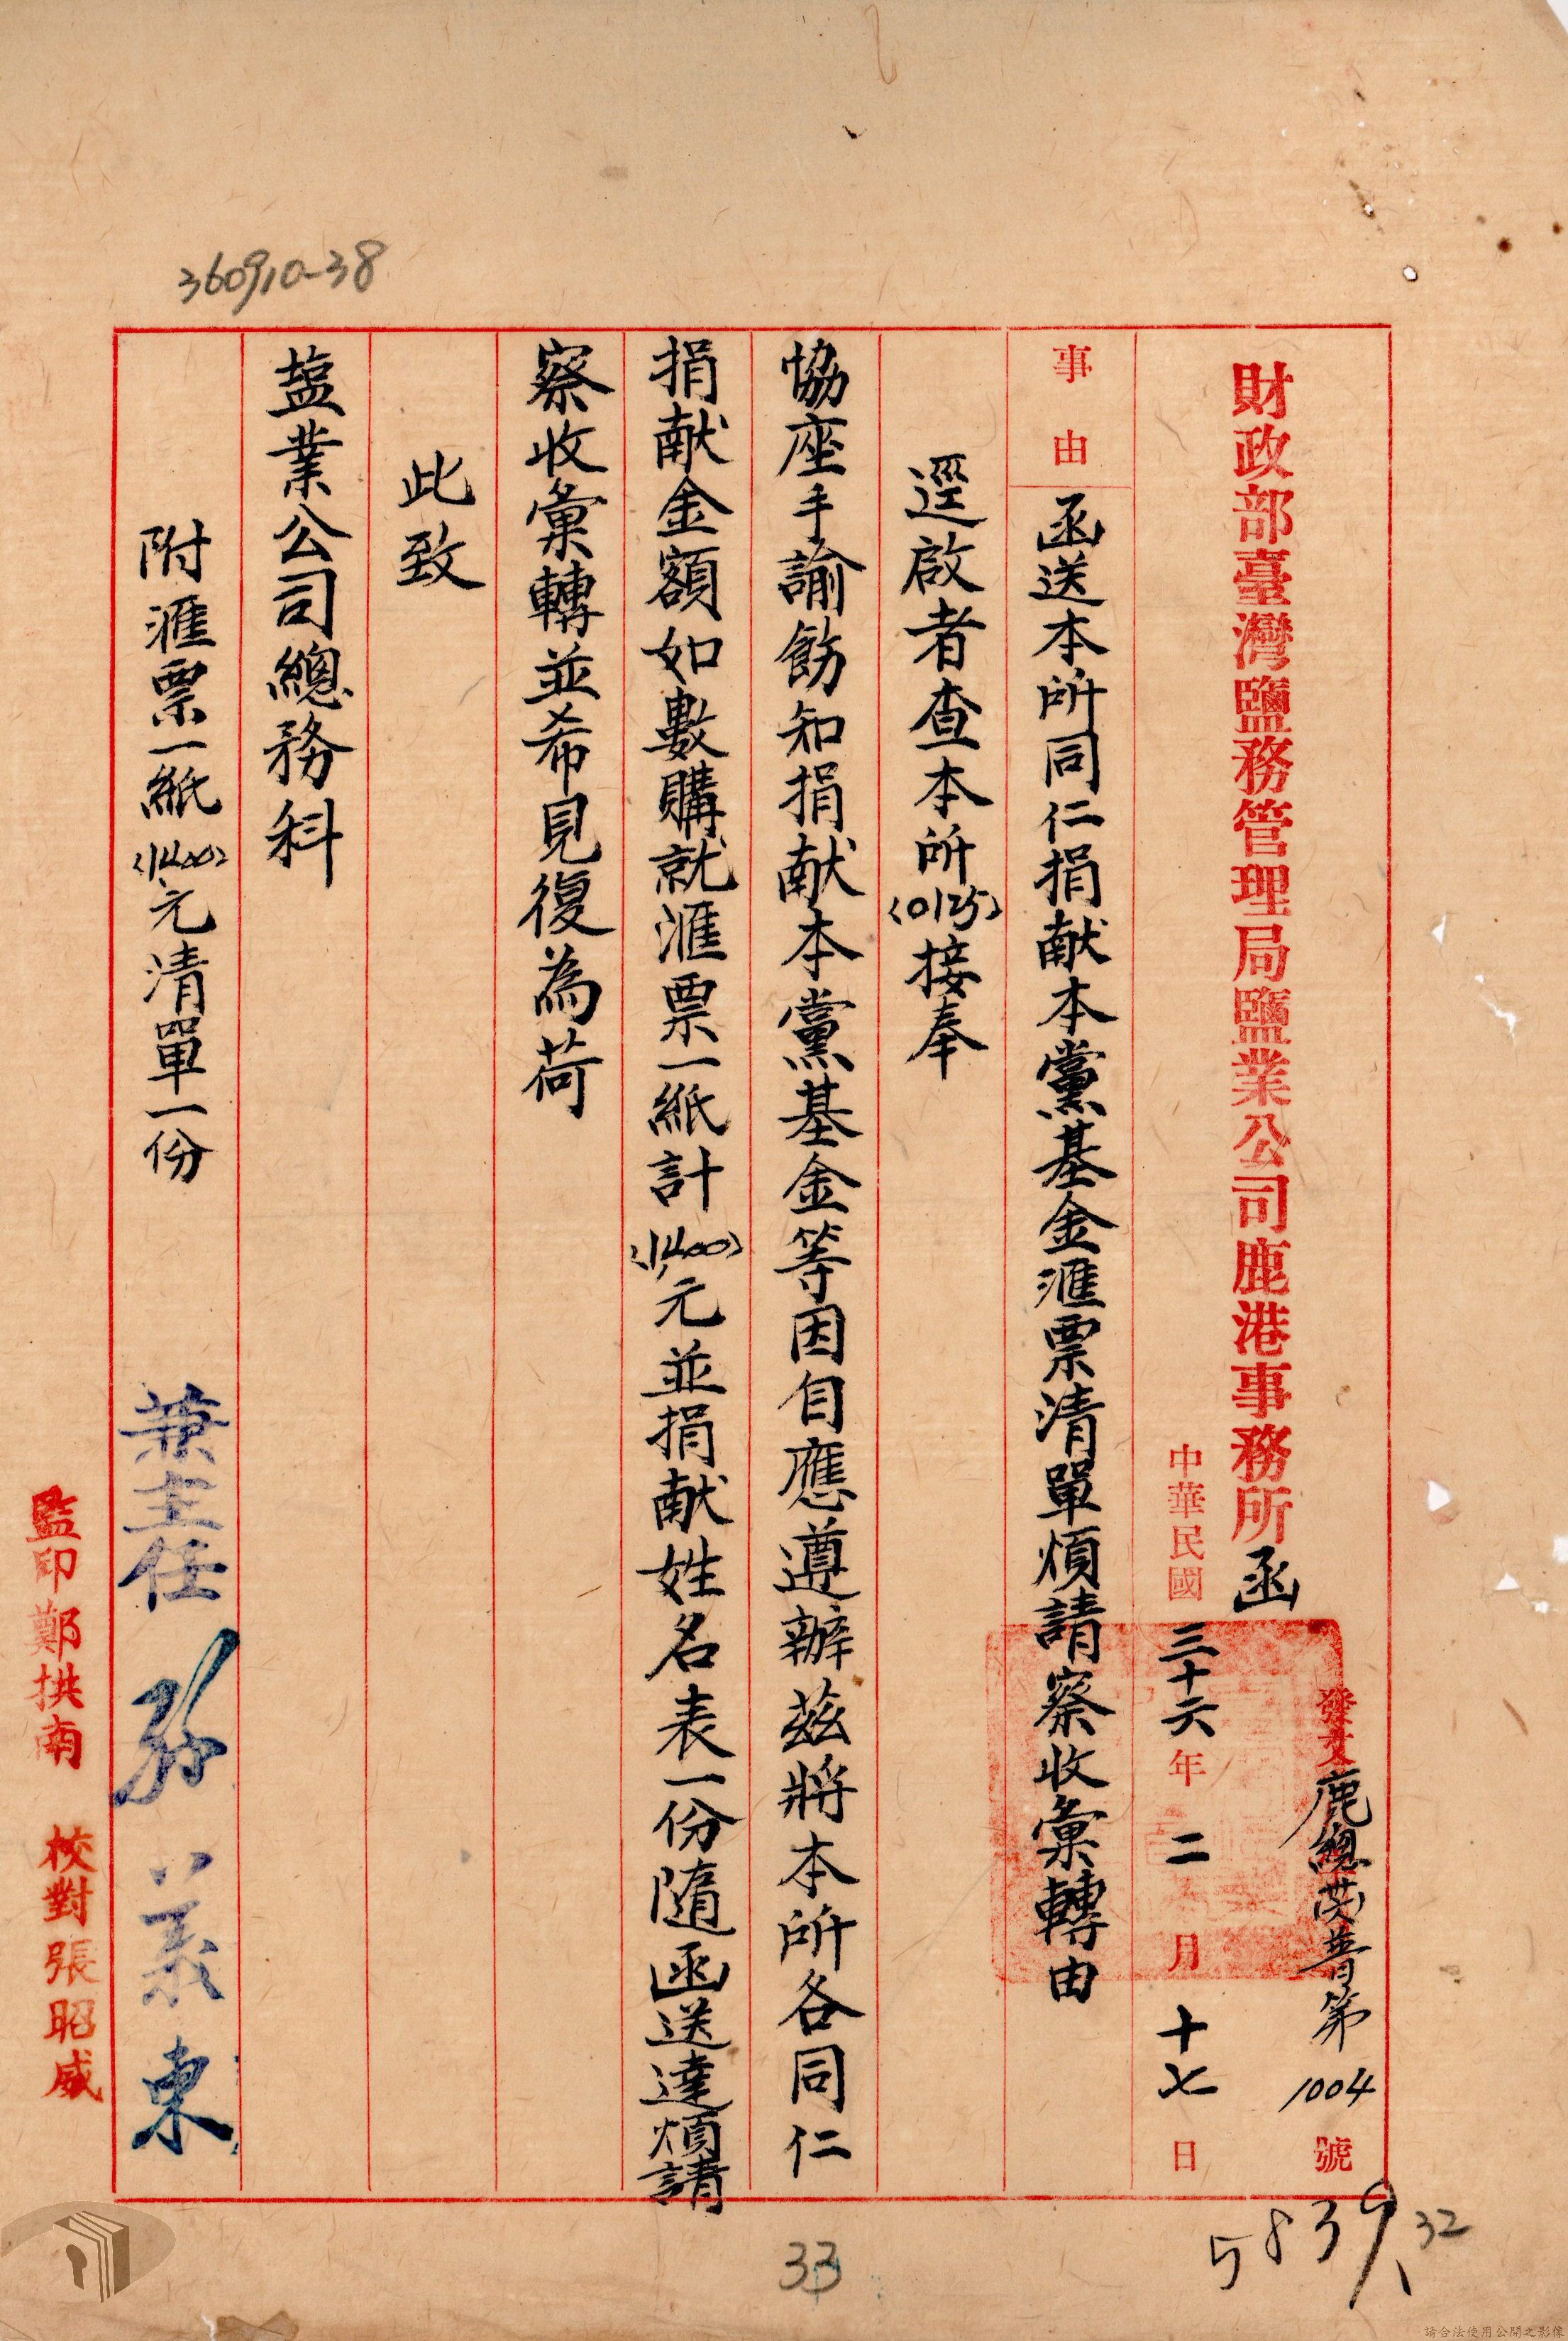 360910-38
財政部臺灣鹽務管理局鹽業公司鹿港事務所函
發文鹿總 普第1004號
中華民國三十六年二月十七日
事由
函送本所同仁捐献本黨基金滙票清單煩請察收彙轉由
逕啟者查本所(0125)接奉
協座手諭飭知捐献本黨基金等因自應遵辦茲將本所各同仁
捐献金額如數購就滙票一紙計(1,400)元並捐献姓名表一份隨函送達煩請
察收彙轉並希見復為荷
此致
塩業公司總務科
附滙票一紙(1,400)元清單一份
兼主任 孫義東
監印鄭拱南 校對張昭威
5839
32
33
請合法使用公開之影像